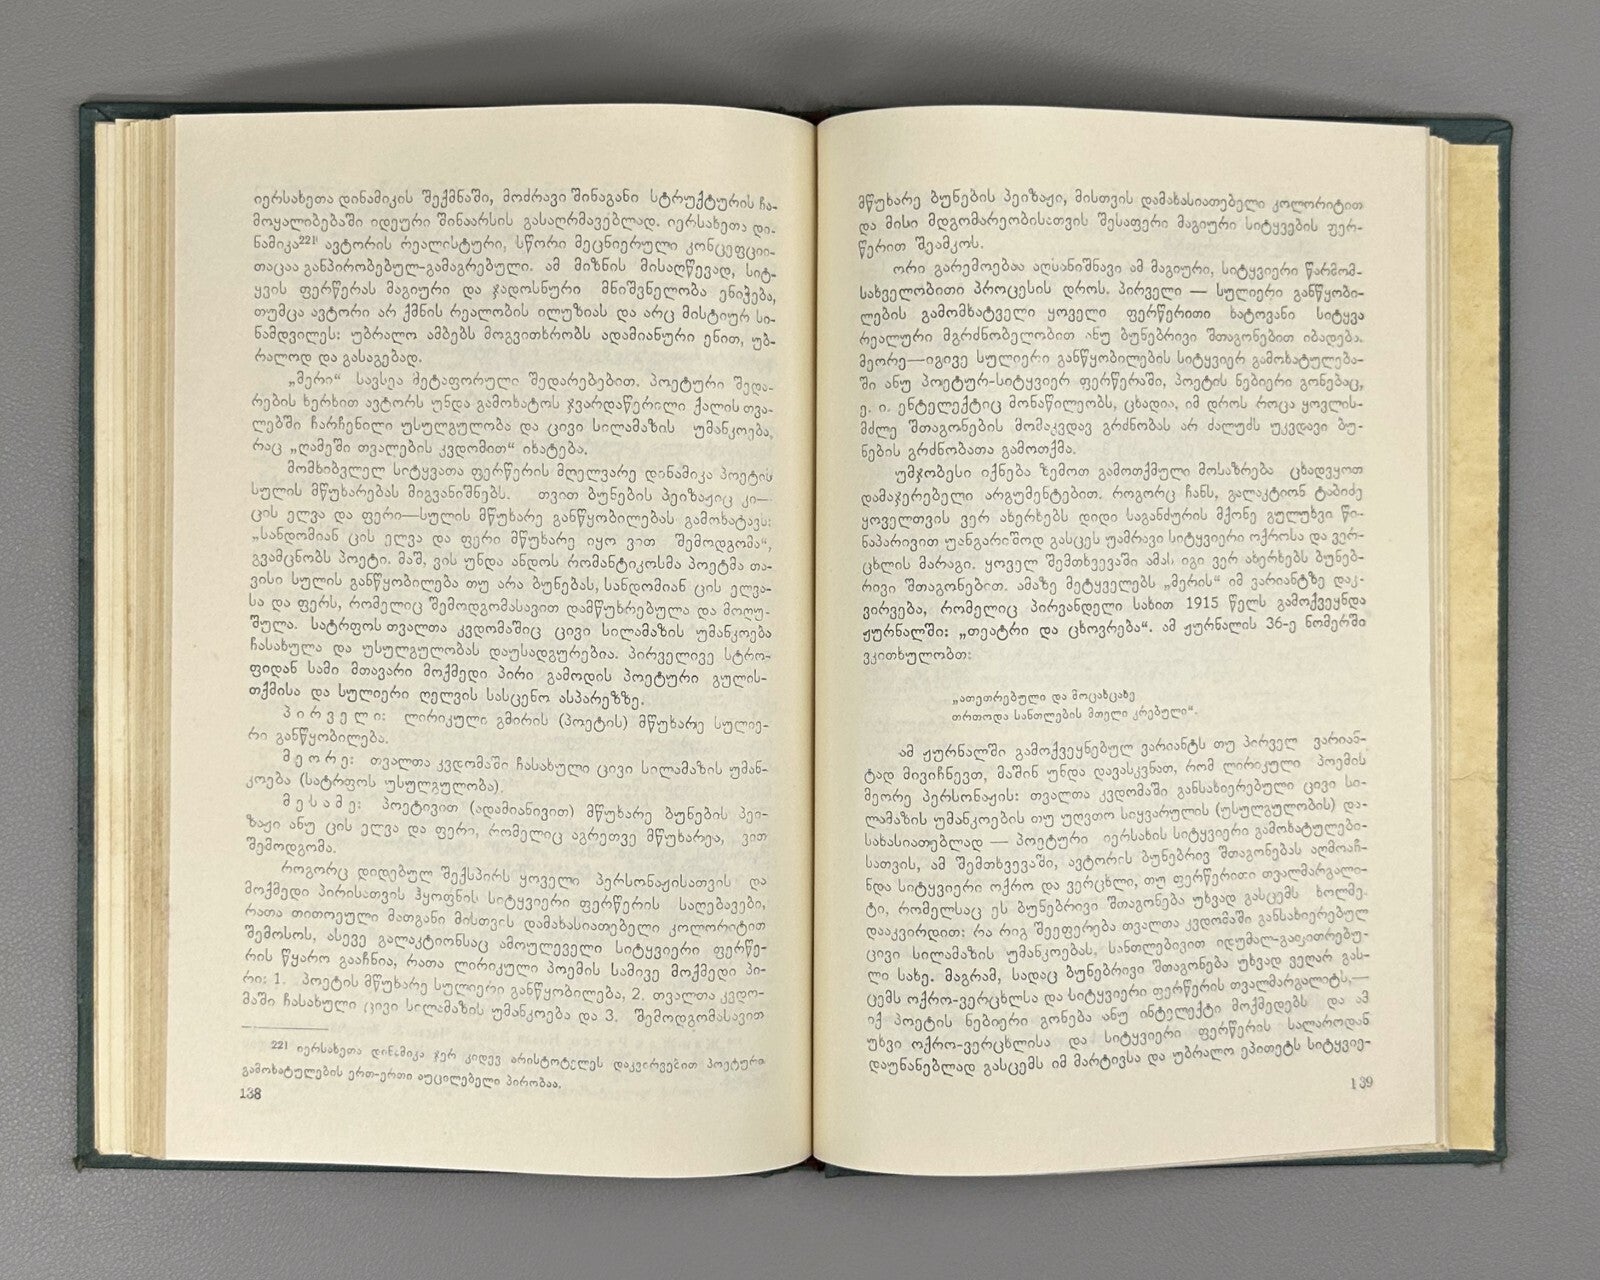 იერსახეთა დინამიკის შექმნაში, მოძრავი შინაგანი სტრუქტურის ჩა-
მოყალიბებაში იდეური შინაარსის გასაღრმავებლად. იერსახეთა დი-
ნამიკა²²¹ ავტორის რეალისტური, სწორი მეცნიერული კონცეფციი-
თაცაა განპირობებულ-გამაგრებული. ამ მიზნის მისაღწევად, სიტ-
ყვის ფერწერას მაგიური და ჯადოსნური მნიშვნელობა ენიჭება,
თუმცა ავტორი არ ქმნის რეალობის ილუზიას და არც მისტიურ სი-
ნამდვილეს: უბრალო ამბებს მოგვითხრობს ადამიანური ენით, უბ-
რალოდ და გასაგებად.
„მერი“ სავსეა მეტაფორული შედარებებით. პოეტური შედა-
რების ხერხით ავტორს უნდა გამოხატოს ჯვარდაწერილი ქალის თვა-
ლებში ჩარჩენილი უსულგულობა და ცივი სილამაზის უმანკოება,
რაც „ღამეში თვალების კვდომით“ იხატება.
მომხიბვლელ სიტყვათა ფერწერის მღელვარე დინამიკა პოეტის
სულის მწუხარებას მიგვანიშნებს. თვით ბუნების პეიზაჟიც კი—
ცის ელვა და ფერი—სულის მწუხარე განწყობილებას გამოხატავს:
„სანდომიან ცის ელვა და ფერი მწუხარე იყო ვით შემოდგომა“,
გვამცნობს პოეტი. მაშ, ვის უნდა ანდოს რომანტიკოსმა პოეტმა თა-
ვისი სულის განწყობილება თუ არა ბუნებას, სანდომიან ცის ელვა-
სა და ფერს, რომელიც შემოდგომასავით დამწუხრებულა და მოღუ-
შულა. სატრფოს თვალთა კვდომაშიც ცივი სილამაზის უმანკოება
ჩასახულა და უსულგულობას დაუსადგურებია. პირველივე სტრო-
ფიდან სამი მთავარი მოქმედი პირი გამოდის პოეტური გულის-
თქმისა და სულიერი ღელვის სასცენო ასპარეზზე.
პირველი: ლირიკული გმირის (პოეტის) მწუხარე სულიე-
რი განწყობილება.
მეორე: თვალთა კვდომაში ჩასახული ცივი სილამაზის უმან-
კოება (სატრფოს უსულგულობა).
მესამე: პოეტივით (ადამიანივით) მწუხარე ბუნების პეი-
ზაჟი ანუ ცის ელვა და ფერი, რომელიც აგრეთვე მწუხარეა, ვით
შემოდგომა.
როგორც დიდებულ შექსპირს ყოველი პერსონაჟისათვის და
მოქმედი პირისათვის ჰყოფნის სიტყვიერი ფერწერის საღებავები,
რათა თითოეული მათგანი მისთვის დამახასიათებელი კოლორიტით
შემოსოს, ასევე გალაკტიონსაც ამოულეველი სიტყვიერი ფერწე-
რის წყარო გააჩნია, რათა ლირიკული პოემის სამივე მოქმედი პი-
რი: 1. პოეტის მწუხარე სულიერი განწყობილება, 2. თვალთა კვდო-
მაში ჩასახული ცივი სილამაზის უმანკოება და 3. შემოდგომასავით
221 იერსახეთა დინამიკა ჯერ კიდევ არისტოტელეს დაკვირვებით პოეტური
გამოხატულების ერთ-ერთი აუცილებელი პირობაა.
138
მწუხარე ბუნების პეიზაჟი, მისთვის დამახასიათებელი კოლორიტით
და მისი მდგომარეობისათვის შესაფერი მაგიური სიტყვების ფერ-
წერით შეამკოს.
ორი გარემოებაა აღსანიშნავი ამ მაგიური, სიტყვიერი წარმომ-
სახველობითი პროცესის დროს. პირველი — სულიერი განწყობი-
ლების გამომხატველი ყოველი ფერწერითი ხატოვანი სიტყვა
რეალური მგრძნობელობით ანუ ბუნებრივი შთაგონებით იბადება.
მეორე—იგივე სულიერი განწყობილების სიტყვიერ გამოხატულება-
ში ანუ პოეტურ-სიტყვიერ ფერწერაში, პოეტის ნებიერი გონებაც,
ე. ი. ენტელექტიც მონაწილეობს, ცხადია, იმ დროს როცა ყოვლის-
მძლე შთაგონების მომაკვდავ გრძნობას არ ძალუძს უკვდავი ბუ-
ნების გრძნობათა გამოთქმა.
უმჯობესი იქნება ზემოთ გამოთქმული მოსაზრება ცხადვყოთ
დამაჯერებელი არგუმენტებით. როგორც ჩანს, გალაკტიონ ტაბიძე
ყოველთვის ვერ ახერხებს დიდი საგანძურის მქონე გულუხვი წი-
ნაპარივით უანგარიშოდ გასცეს უამრავი სიტყვიერი ოქროსა და ვერ-
ცხლის მარაგი. ყოველ შემთხვევაში ამას იგი ვერ ახერხებს ბუნებ-
რივი შთაგონებით. ამაზე მეტყველებს „მერის“ იმ ვარიანტზე დაკ-
ვირვება, რომელიც პირვანდელი სახით 1915 წელს გამოქვეყნდა
ჟურნალში: „თეატრი და ცხოვრება“. ამ ჟურნალის 36-ე ნომერში
ვკითხულობთ:
„ათეთრებული და მოცახცახე
თრთოდა სანთლების მთელი კრებული“.
ამ ჟურნალში გამოქვეყნებულ ვარიანტს თუ პირველ ვარიან-
ტად მივიჩნევთ, მაშინ უნდა დავასკვნათ, რომ ლირიკული პოემის
მეორე პერსონაჟის: თვალთა კვდომაში განსახიერებული ცივი სი-
ლამაზის უმანკოების თუ უღვთო სიყვარულის (უსულგულობის) და-
სახასიათებლად — პოეტური იერსახის სიტყვიერი გამოხატულები-
სათვის, ამ შემთხვევაში, ავტორის ბუნებრივ შთაგონებას აღმოაჩ-
ნდა სიტყვიერი ოქრო და ვერცხლი, თუ ფერწერითი თვალმარგალი-
ტი, რომელსაც ეს ბუნებრივი შთაგონება უხვად გასცემს ხოლმე.
დააკვირდით: რა რიგ შეეფერება თვალთა კვდომაში განსახიერებულ
ცივი სილამაზის უმანკოებას, სანთლებივით იდუმალ-გაფითრებუ-
ლი სახე. მაგრამ, სადაც ბუნებრივი შთაგონება უხვად ვეღარ გას-
ცემს ოქრო-ვერცხლსა და სიტყვიერი ფერწერის თვალმარგალიტს,—
იქ პოეტის ნებიერი გონება ანუ ინტელექტი მოქმედებს და ამ
უხვი ოქრო-ვერცხლისა და სიტყვიერი ფერწერის სალაროდან
დაუნანებლად გასცემს იმ მარტივსა და უბრალო ეპითეტს სიტყვიე-
139